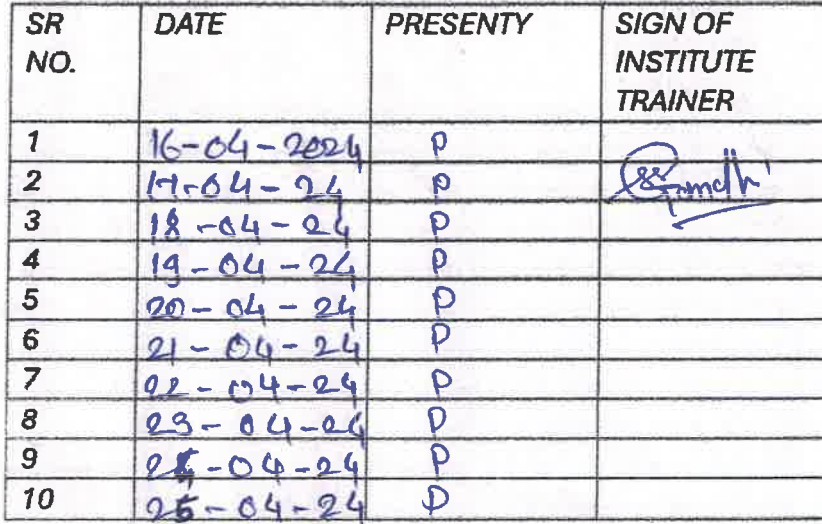 SR NO. DATE PRESENTY SIGN OF INSTITUTE TRAINER
1 16-04-2024 P
2 17-04-24 P
3 18-04-24 P
4 19-04-24 P
5 20-04-24 P
6 21-04-24 P
7 22-04-24 P
8 23-04-24 P
9 24-04-24 P
10 25-04-24 P